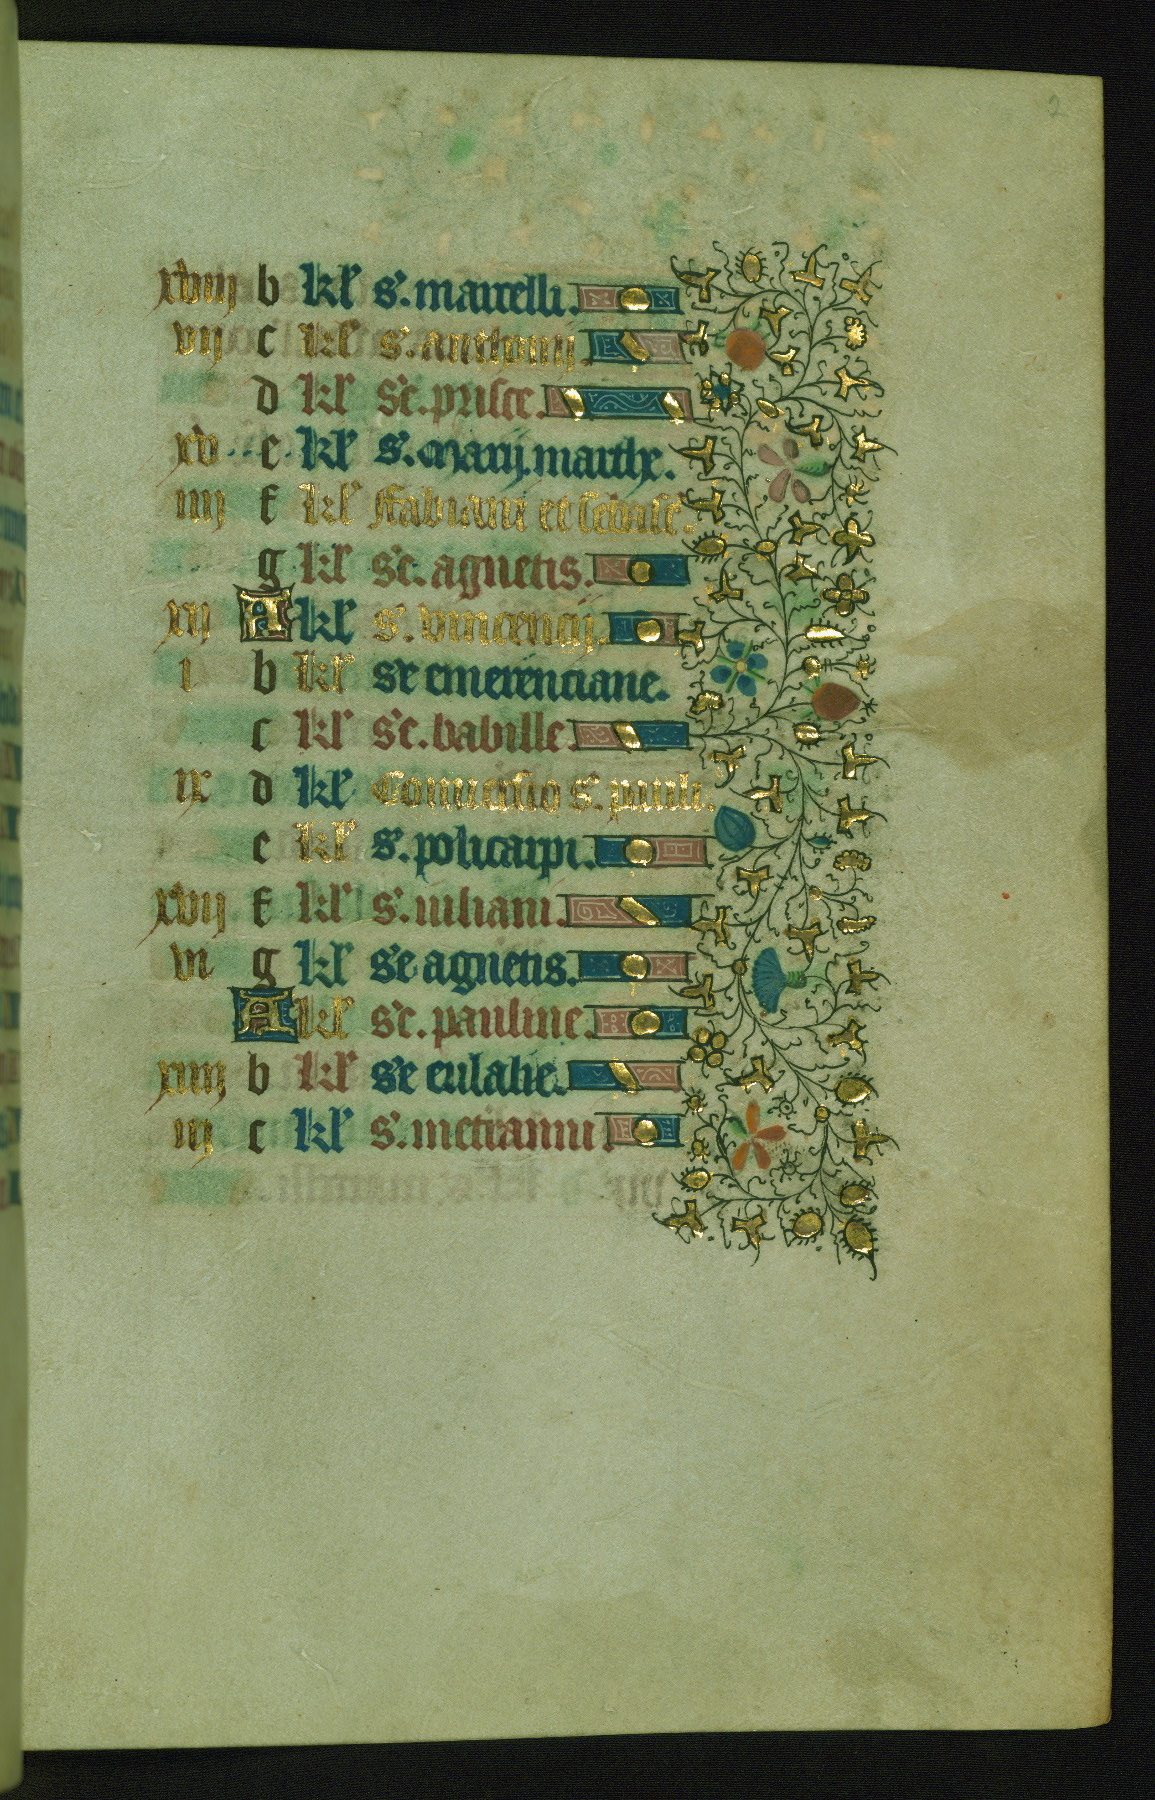 2
xviij b kl' s'. marcelli.
vij c kl' s'. anthonij.
d kl' s'c. prisce.
xv e kl' s'. marij marthe.
iiij f kl' ffabiani et sebasc.
g kl' s'c. agnetis.
xij A kl' s'. vincencij.
i b kl' s'e emerenciane.
c kl' s'c. babille.
ix d kl' Conuersio s'. pauli.
e kl' s'. policarpi.
xvij f kl' s'. iuliani.
vi g kl' s'e agnetis.
A kl' s'c. pauline.
xiiij b kl' s'e eulalie.
iij c kl' s'. metranni